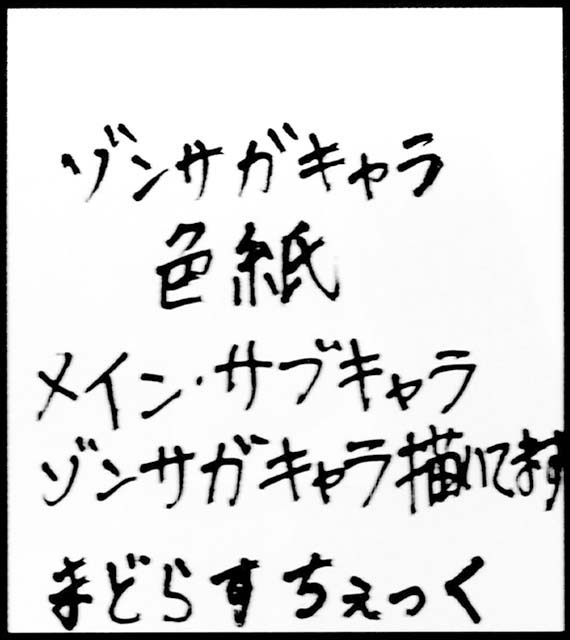 ゾンサガキャラ
色紙
メイン・サブキャラ
ゾンサガキャラ描いてます
まどらすちぇっく